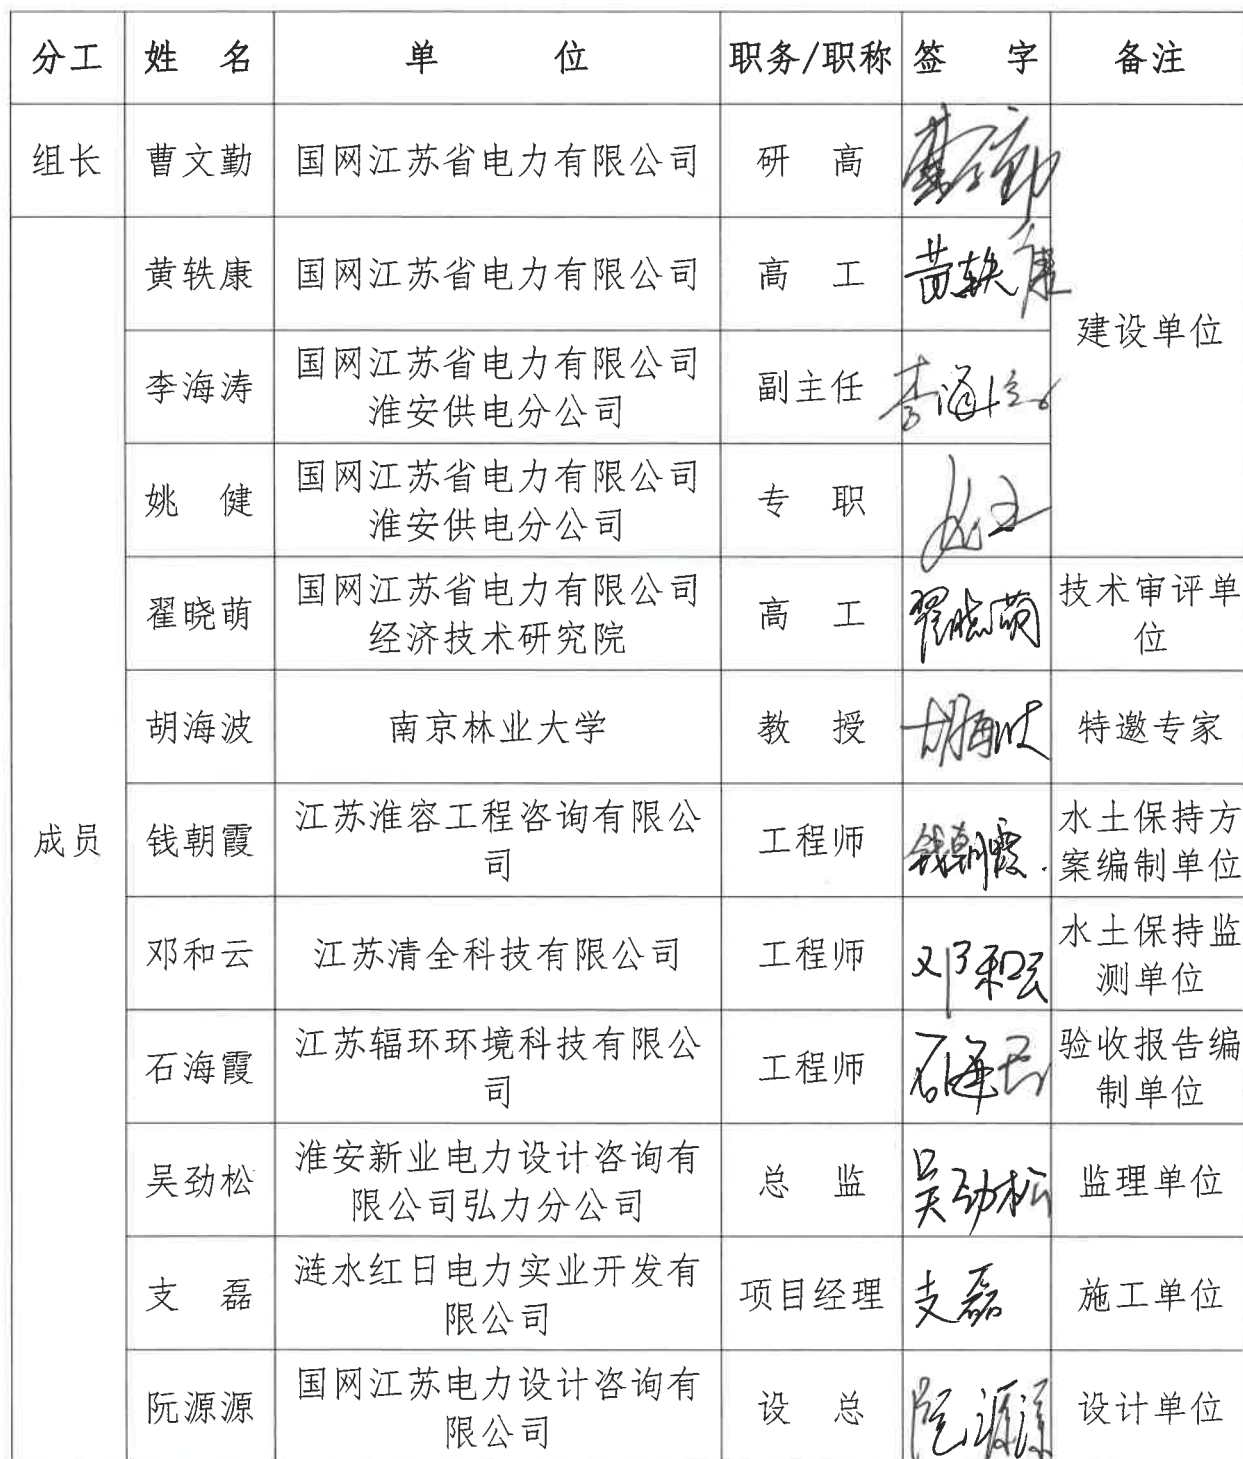 分工 姓 名 单 位 职务/职称 签 字 备注
组长 曹文勤 国网江苏省电力有限公司 研 高 曹文勤
黄轶康 国网江苏省电力有限公司 高 工 黄轶康
建设单位
李海涛 国网江苏省电力有限公司
淮安供电分公司 副主任 李海涛
姚 健 国网江苏省电力有限公司
淮安供电分公司 专 职
翟晓萌 国网江苏省电力有限公司
经济技术研究院 高 工 翟晓萌 技术审评单
位
胡海波 南京林业大学 教 授 胡海波 特邀专家
成员 钱朝霞 江苏淮容工程咨询有限公
司 工程师 钱朝霞 水土保持方
案编制单位
邓和云 江苏清全科技有限公司 工程师 邓和云 水土保持监
测单位
石海霞 江苏辐环环境科技有限公
司 工程师 石海霞 验收报告编
制单位
吴劲松 淮安新业电力设计咨询有
限公司弘力分公司 总 监 吴劲松 监理单位
支 磊 涟水红日电力实业开发有
限公司 项目经理 支磊 施工单位
阮源源 国网江苏电力设计咨询有
限公司 设 总 阮源源 设计单位